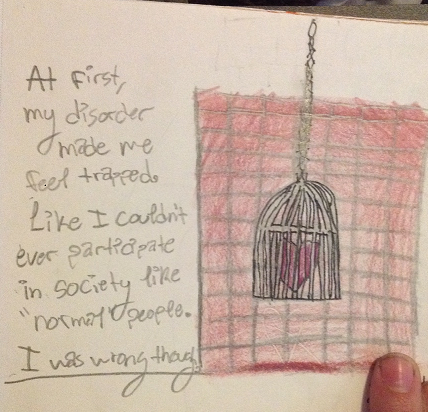 At first,
my disorder
made me
feel trapped.
Like I couldn't
ever participate
in society like
"normal" people.
I was wrong though